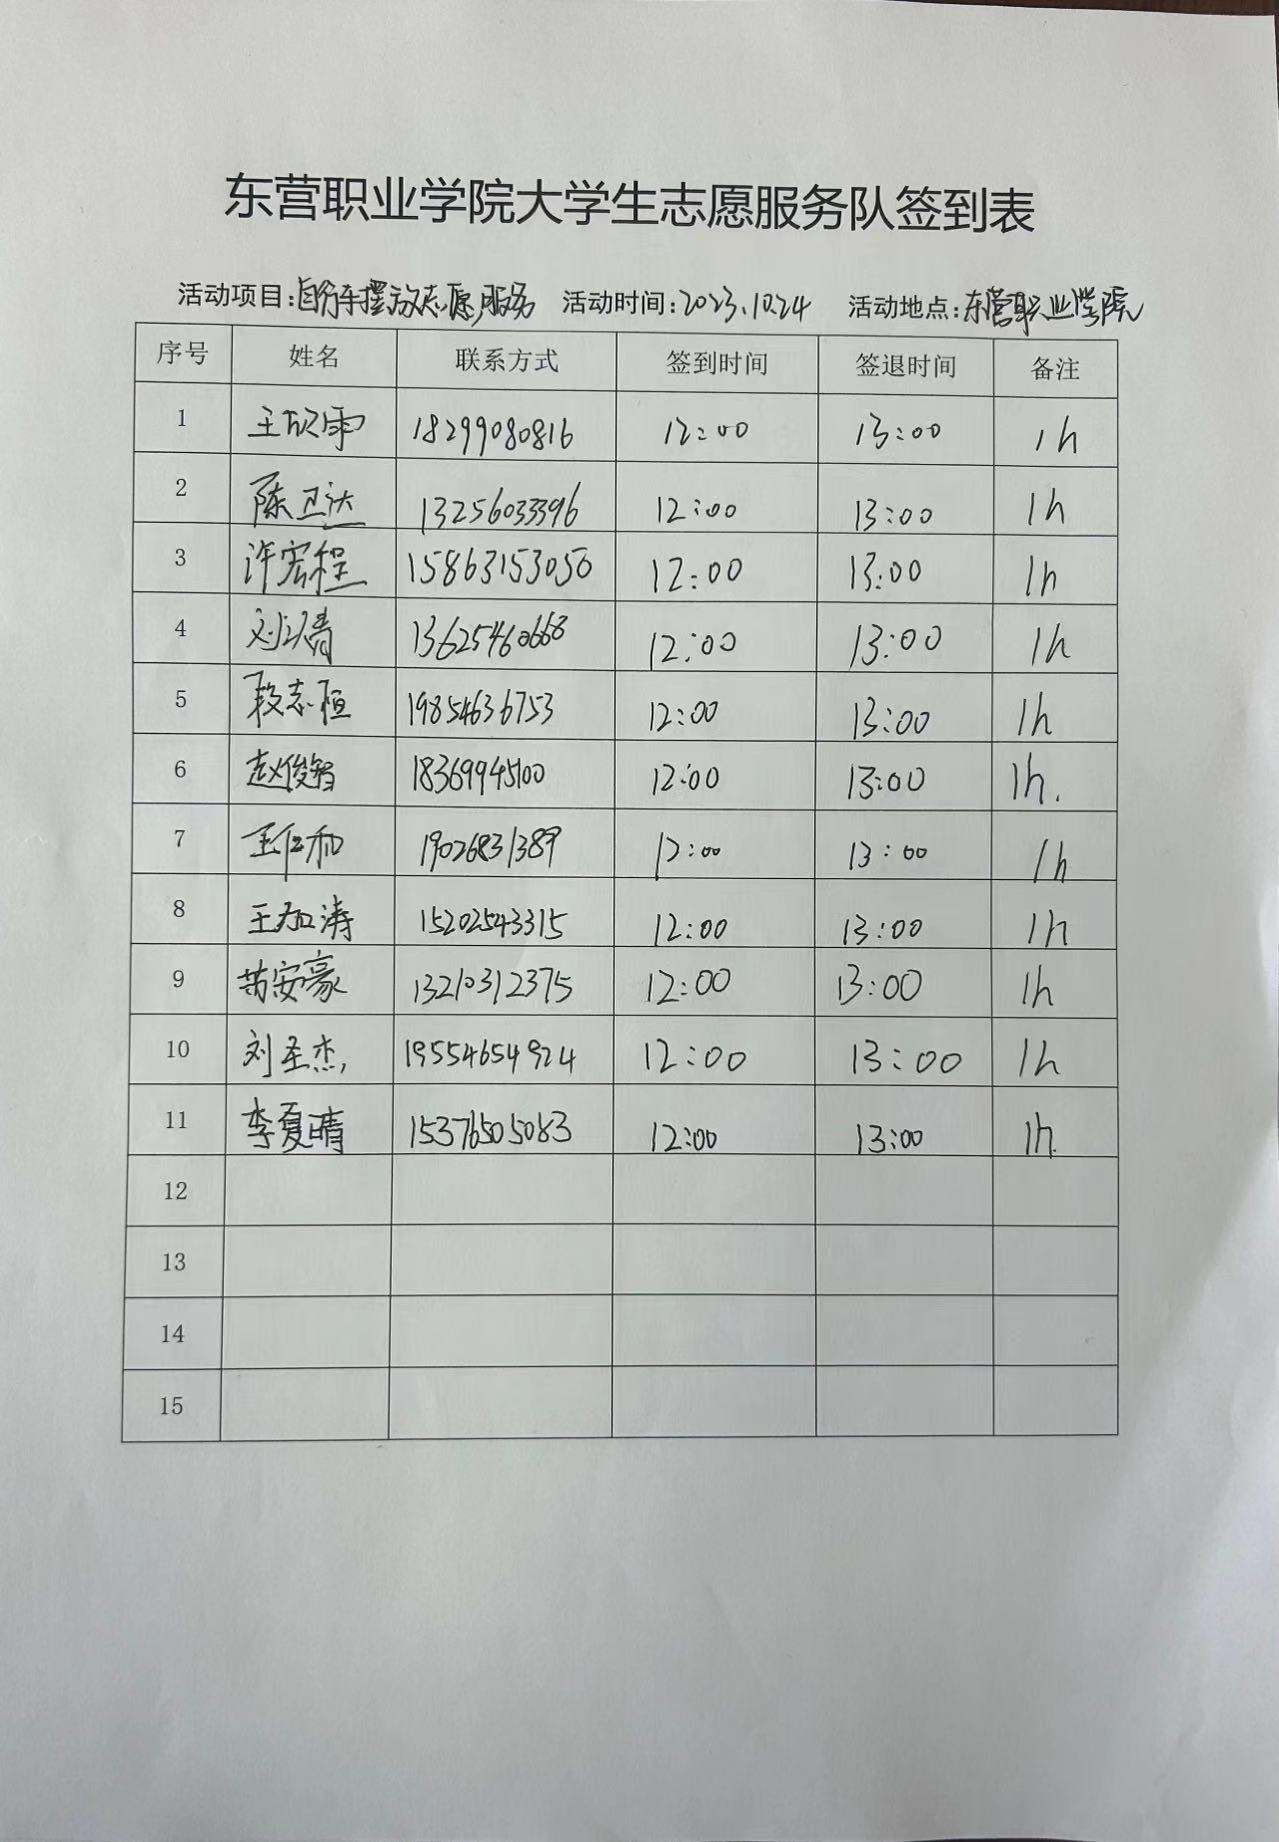 东营职业学院大学生志愿服务队签到表
活动项目:自行车摆放志愿服务 活动时间:2023.10.24 活动地点:东营职业学院
序号 姓名 联系方式 签到时间 签退时间 备注
1 王欣雨 18299080816 12:00 13:00 1h
2 陈卫达 13256033396 12:00 13:00 1h
3 许宏程 15863153050 12:00 13:00 1h
4 刘 13625460668 12:00 13:00 1h
5 段志恒 19854636753 12:00 13:00 1h
6 赵俊智 18369945100 12:00 13:00 1h.
7 王仁和 19026831389 12:00 13:00 1h
8 王 涛 15202543315 12:00 13:00 1h
9 安豪 13210312375 12:00 13:00 1h
10 刘圣杰 19554654924 12:00 13:00 1h
11 李夏晴 15376505083 12:00 13:00 1h.
12
13
14
15